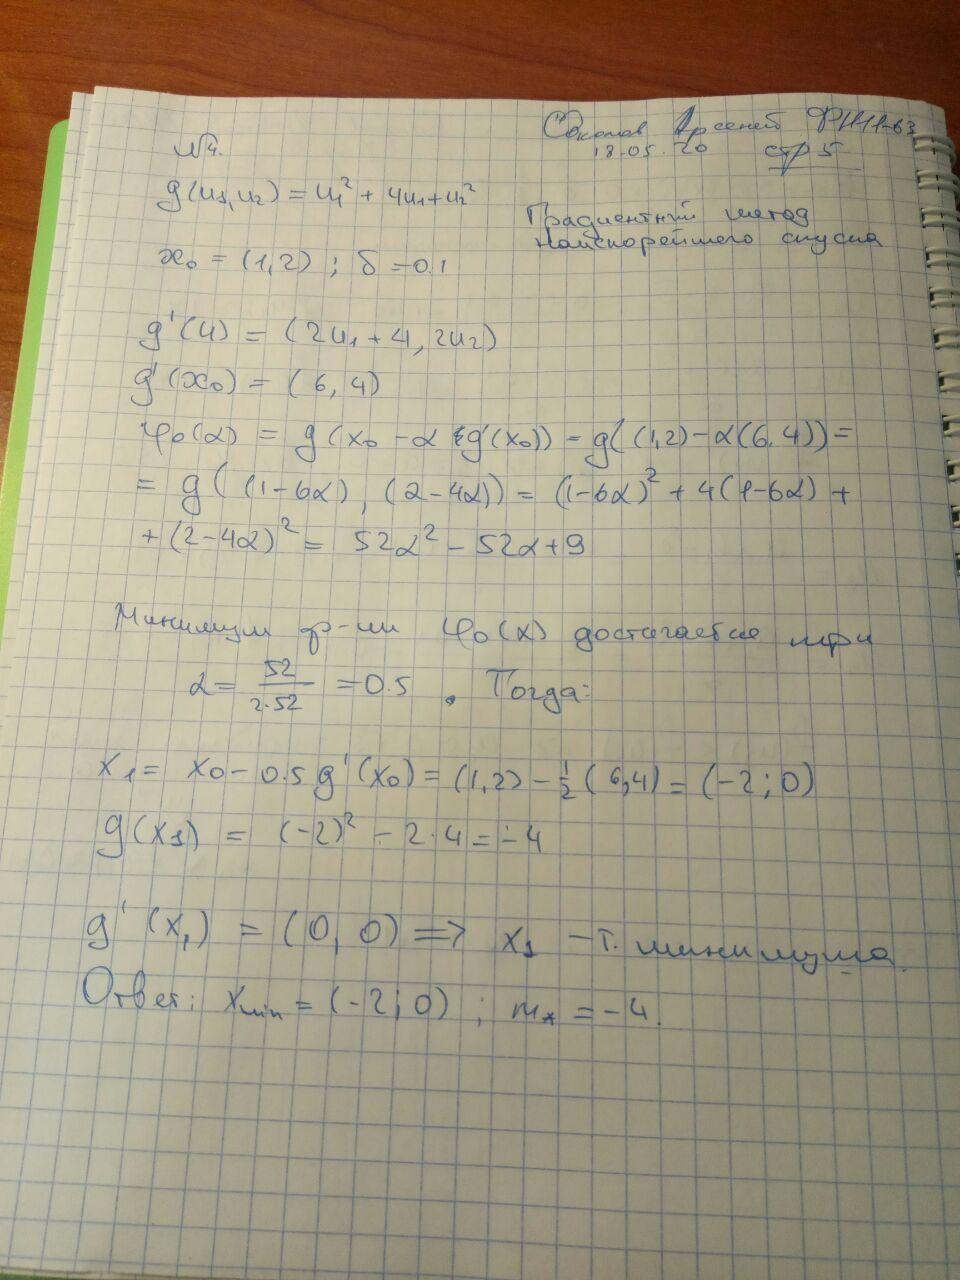 Соколов Арсений ФН11-63
18.05.20 стр 5
№4.
g(u₁,u₂) = u₁² + 4u₁ + u₂²
Градиентный метод
наискорейшего спуска
x₀ = (1,2) ; δ = 0.1
g'(u) = (2u₁ + 4, 2u₂)
g'(x₀) = (6, 4)
φ₀(α) = g(x₀ - α g'(x₀)) = g((1,2) - α(6,4)) =
= g((1-6α), (2-4α)) = (1-6α)² + 4(1-6α) +
+ (2-4α)² = 52α² - 52α + 9
Минимум ф-ии φ₀(α) достигается при
α = 52/(2·52) = 0.5 . Тогда:
x₁ = x₀ - 0.5 g'(x₀) = (1,2) - ½(6,4) = (-2; 0)
g(x₁) = (-2)² - 2·4 = -4
g'(x₁) = (0, 0) => x₁ - т. минимума.
Ответ: xmin = (-2; 0) ; m* = -4.